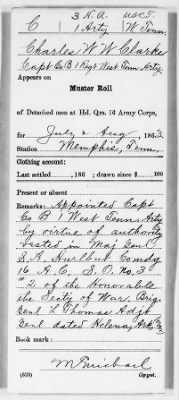 3 H.A. U.S.C.T.
C 1 Arty W Tenn.
Charles W W Clarke
Capt Co B 1 Regt West Tenn Arty
Appears on
Muster Roll
of Detached men at Hd. Qrs. 16 Army Corps,
for July & Aug, 1863.
Station Memphis, Tenn.
Clothing account:
Last settled , 186 ; drawn since $ 100
Present or absent
Remarks: Appointed Capt
Co B 1 West Tenn. Arty
by virtue of authority
vested in Maj Genl
S. A. Hurlbut Comdg
16 A.C. S.O. No. 3
" 2 of the Honorable
the Secty of War, Brig
Genl L Thomas Adjt
Genl dated Helena, Ark
Book mark:
McMichael
(639) Copyist.